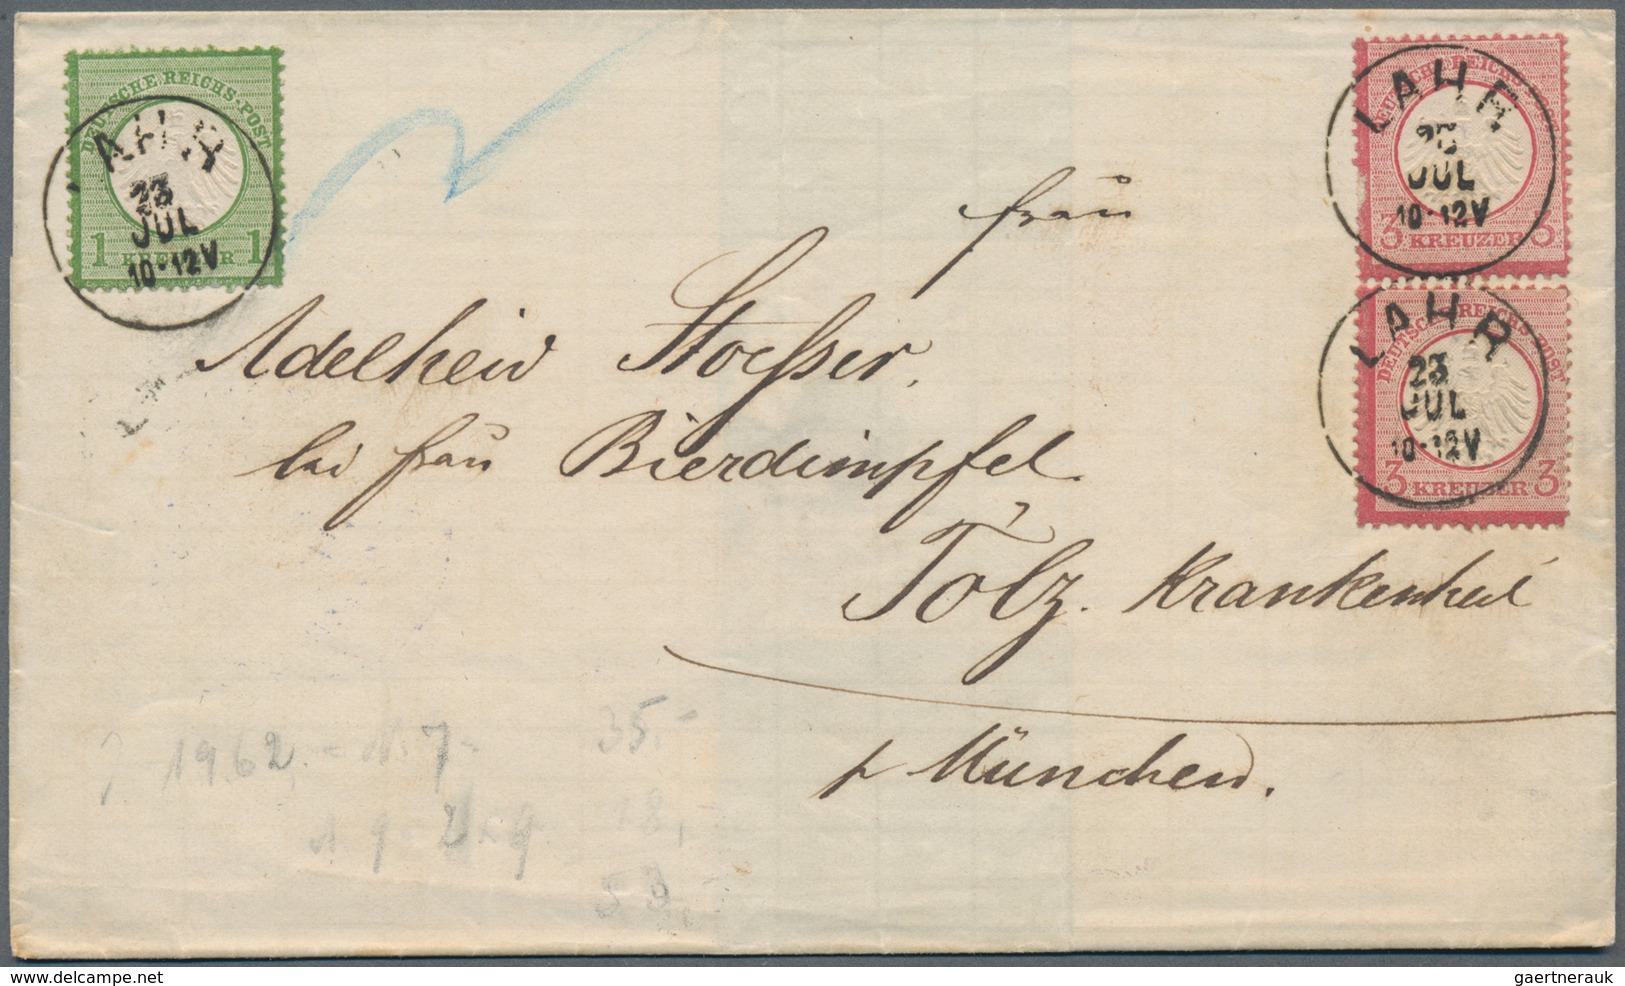 DEUTSCHE REICHS-POST
LAHR
23
JUL
10-12V
1 KREUZER 1
DEUTSCHE REICHS
LAHR
23
JUL
10-12V
3 KREUZER 3
DEUTSCHE REICHS-POST
LAHR
23
JUL
10-12V
3 KREUZER 3
frau
Adelheid Stoesser.
bei frau Bierdimpfel
Tölz. Krankenheil
p München.
1962 - 7-
35.-
18,-
53,-
www.delcampe.net
gaertnerauk